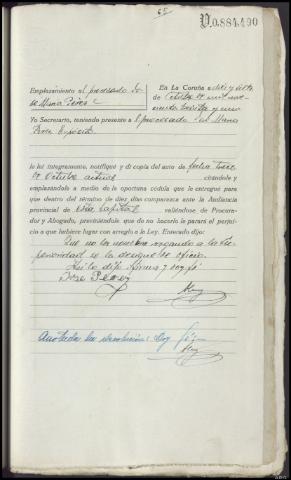 65
P.0.884,490
Emplazamiento al procesado Jo-
sé María Pérez
En La Coruña a diez y siete
de Octubre de mil nove-
cientos treinta y uno
Yo Secretario, teniendo presente a el procesado José María
Pérez Expósito
le leí íntegramente, notifiqué y di copia del auto de fecha trece
de Octubre actual citándole y
emplazándole a medio de la oportuna cédula que le entregué para
que dentro del término de diez días comparezca ante la Audiencia
provincial de esta Capital valiéndose de Procura-
dor y Abogado, previniéndole que de no hacerlo le parará el perjui-
cio a que hubiere lugar con arreglo a la Ley. Enterado dijo:
Que no los nombra rogando a la Su-
perioridad se le designe los de oficio.
Así lo dijo firma y doy fé
Jose Perez
Anotada la resolución: doy fé